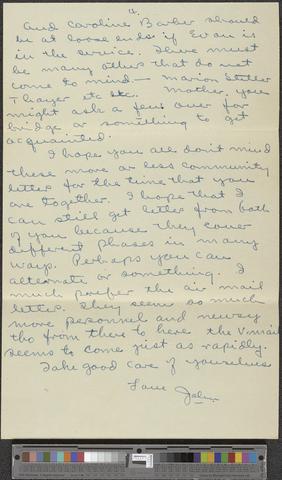 4.
And Caroline Barber should
be at loose ends if Evan is
in the service. There must
be many others that do not
come to mind — Marion
Thayer etc etc. Mother, you
might ask a few over for
bridge or something to get
acquainted.
I hope you all don't mind
these more or less community
letters for the time that you
are together. I hope that I
can still get letters from both
of you because they cover
different phases in many
ways. Perhaps you can
alternate or something. I
much prefer the air mail
letters. They seem so much
more personnel and newsy
tho from there to here the V-mail
seems to come just as rapidly.
Take good care of yourselves
Love John